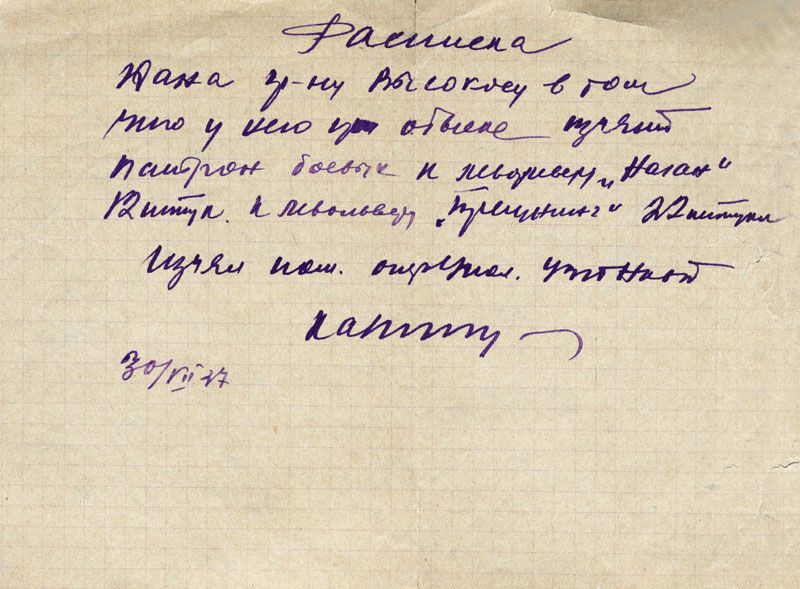 Расписка
Дана гр-ну Высокосу в том
что у него при обыске изъят
патрон боевых к левольверу „Наган“
12 штук. к левольверу „Браунинг“ 22 штуки
Изъял пом. опер
30/VII 37